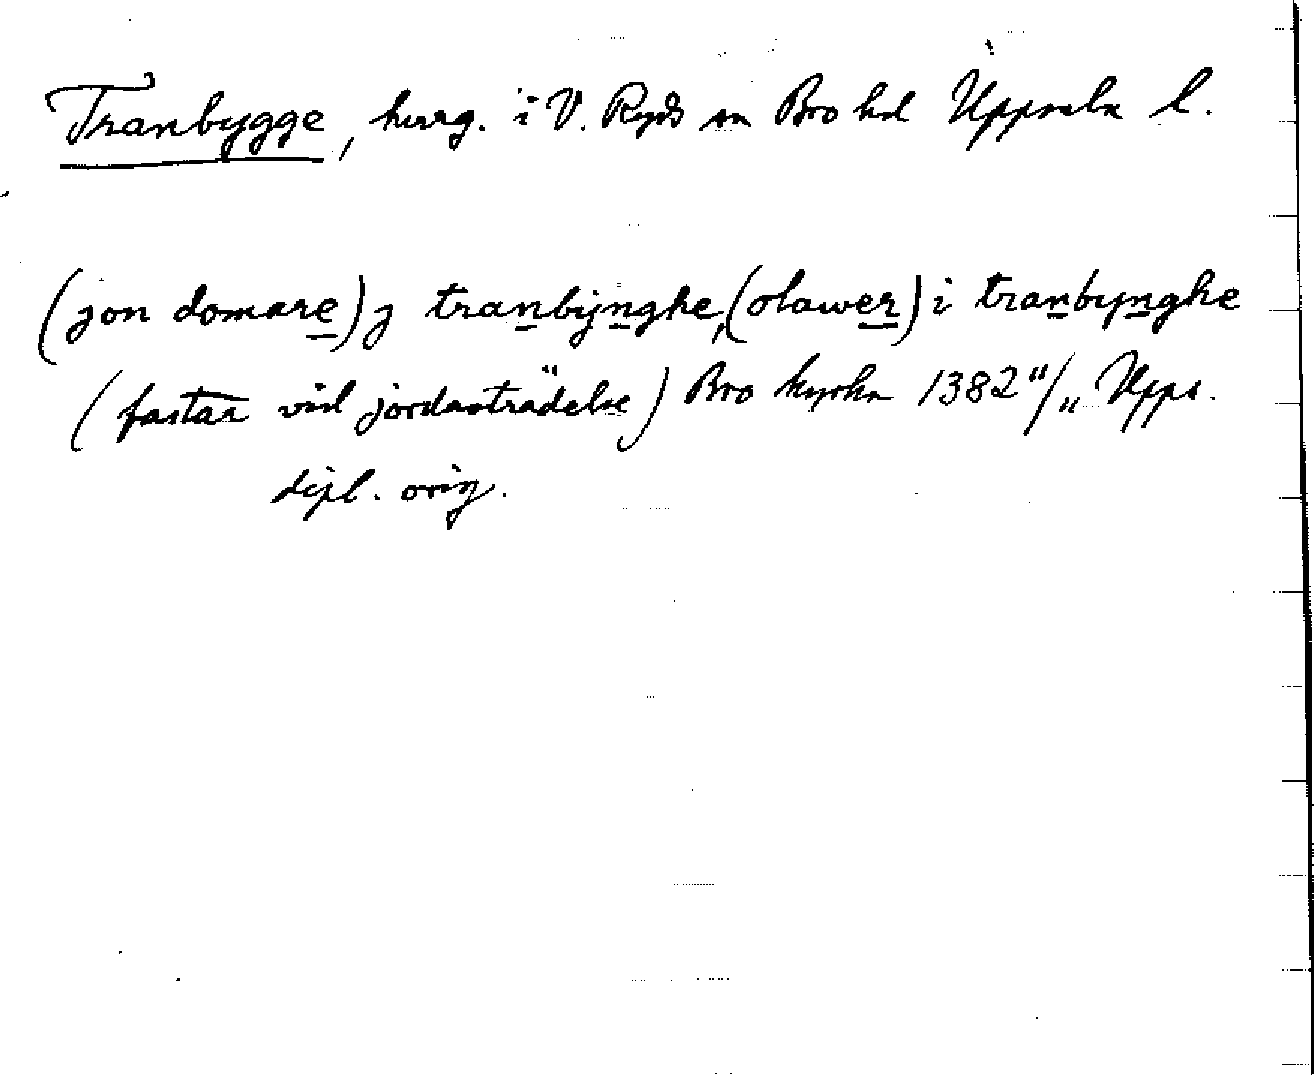 Tranbygge, herrg. i V. Ryds sn Bro hd Uppsala l.
(jon domare) j tranbijnghe, (olawer) i tranbynghe
(fastar vid jordaträdelse) Bro kyrka 1382 "/" Upps.
dipl. orig.